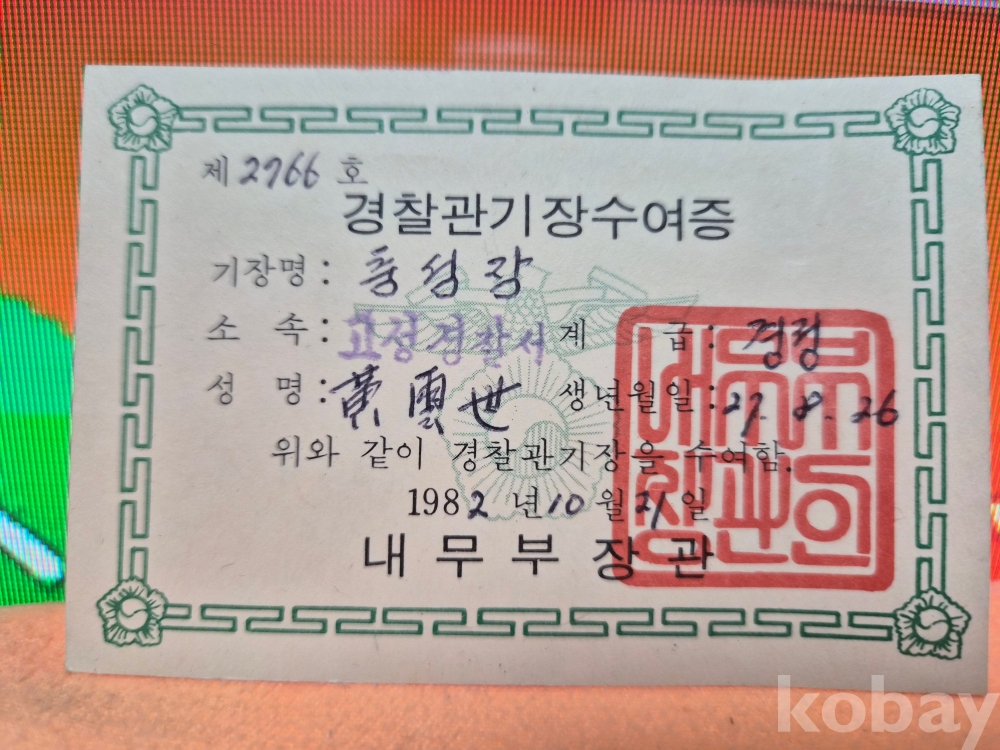 제 2766 호
경찰관기장수여증
기장명 : 흥성장
소 속 : 고성경찰서 계 급 : 경정
성 명 : 黃雲世 생년월일 : 27. 8. 26
위와 같이 경찰관기장을 수여함.
1982 년 10 월 21 일
내무부장관
kobay